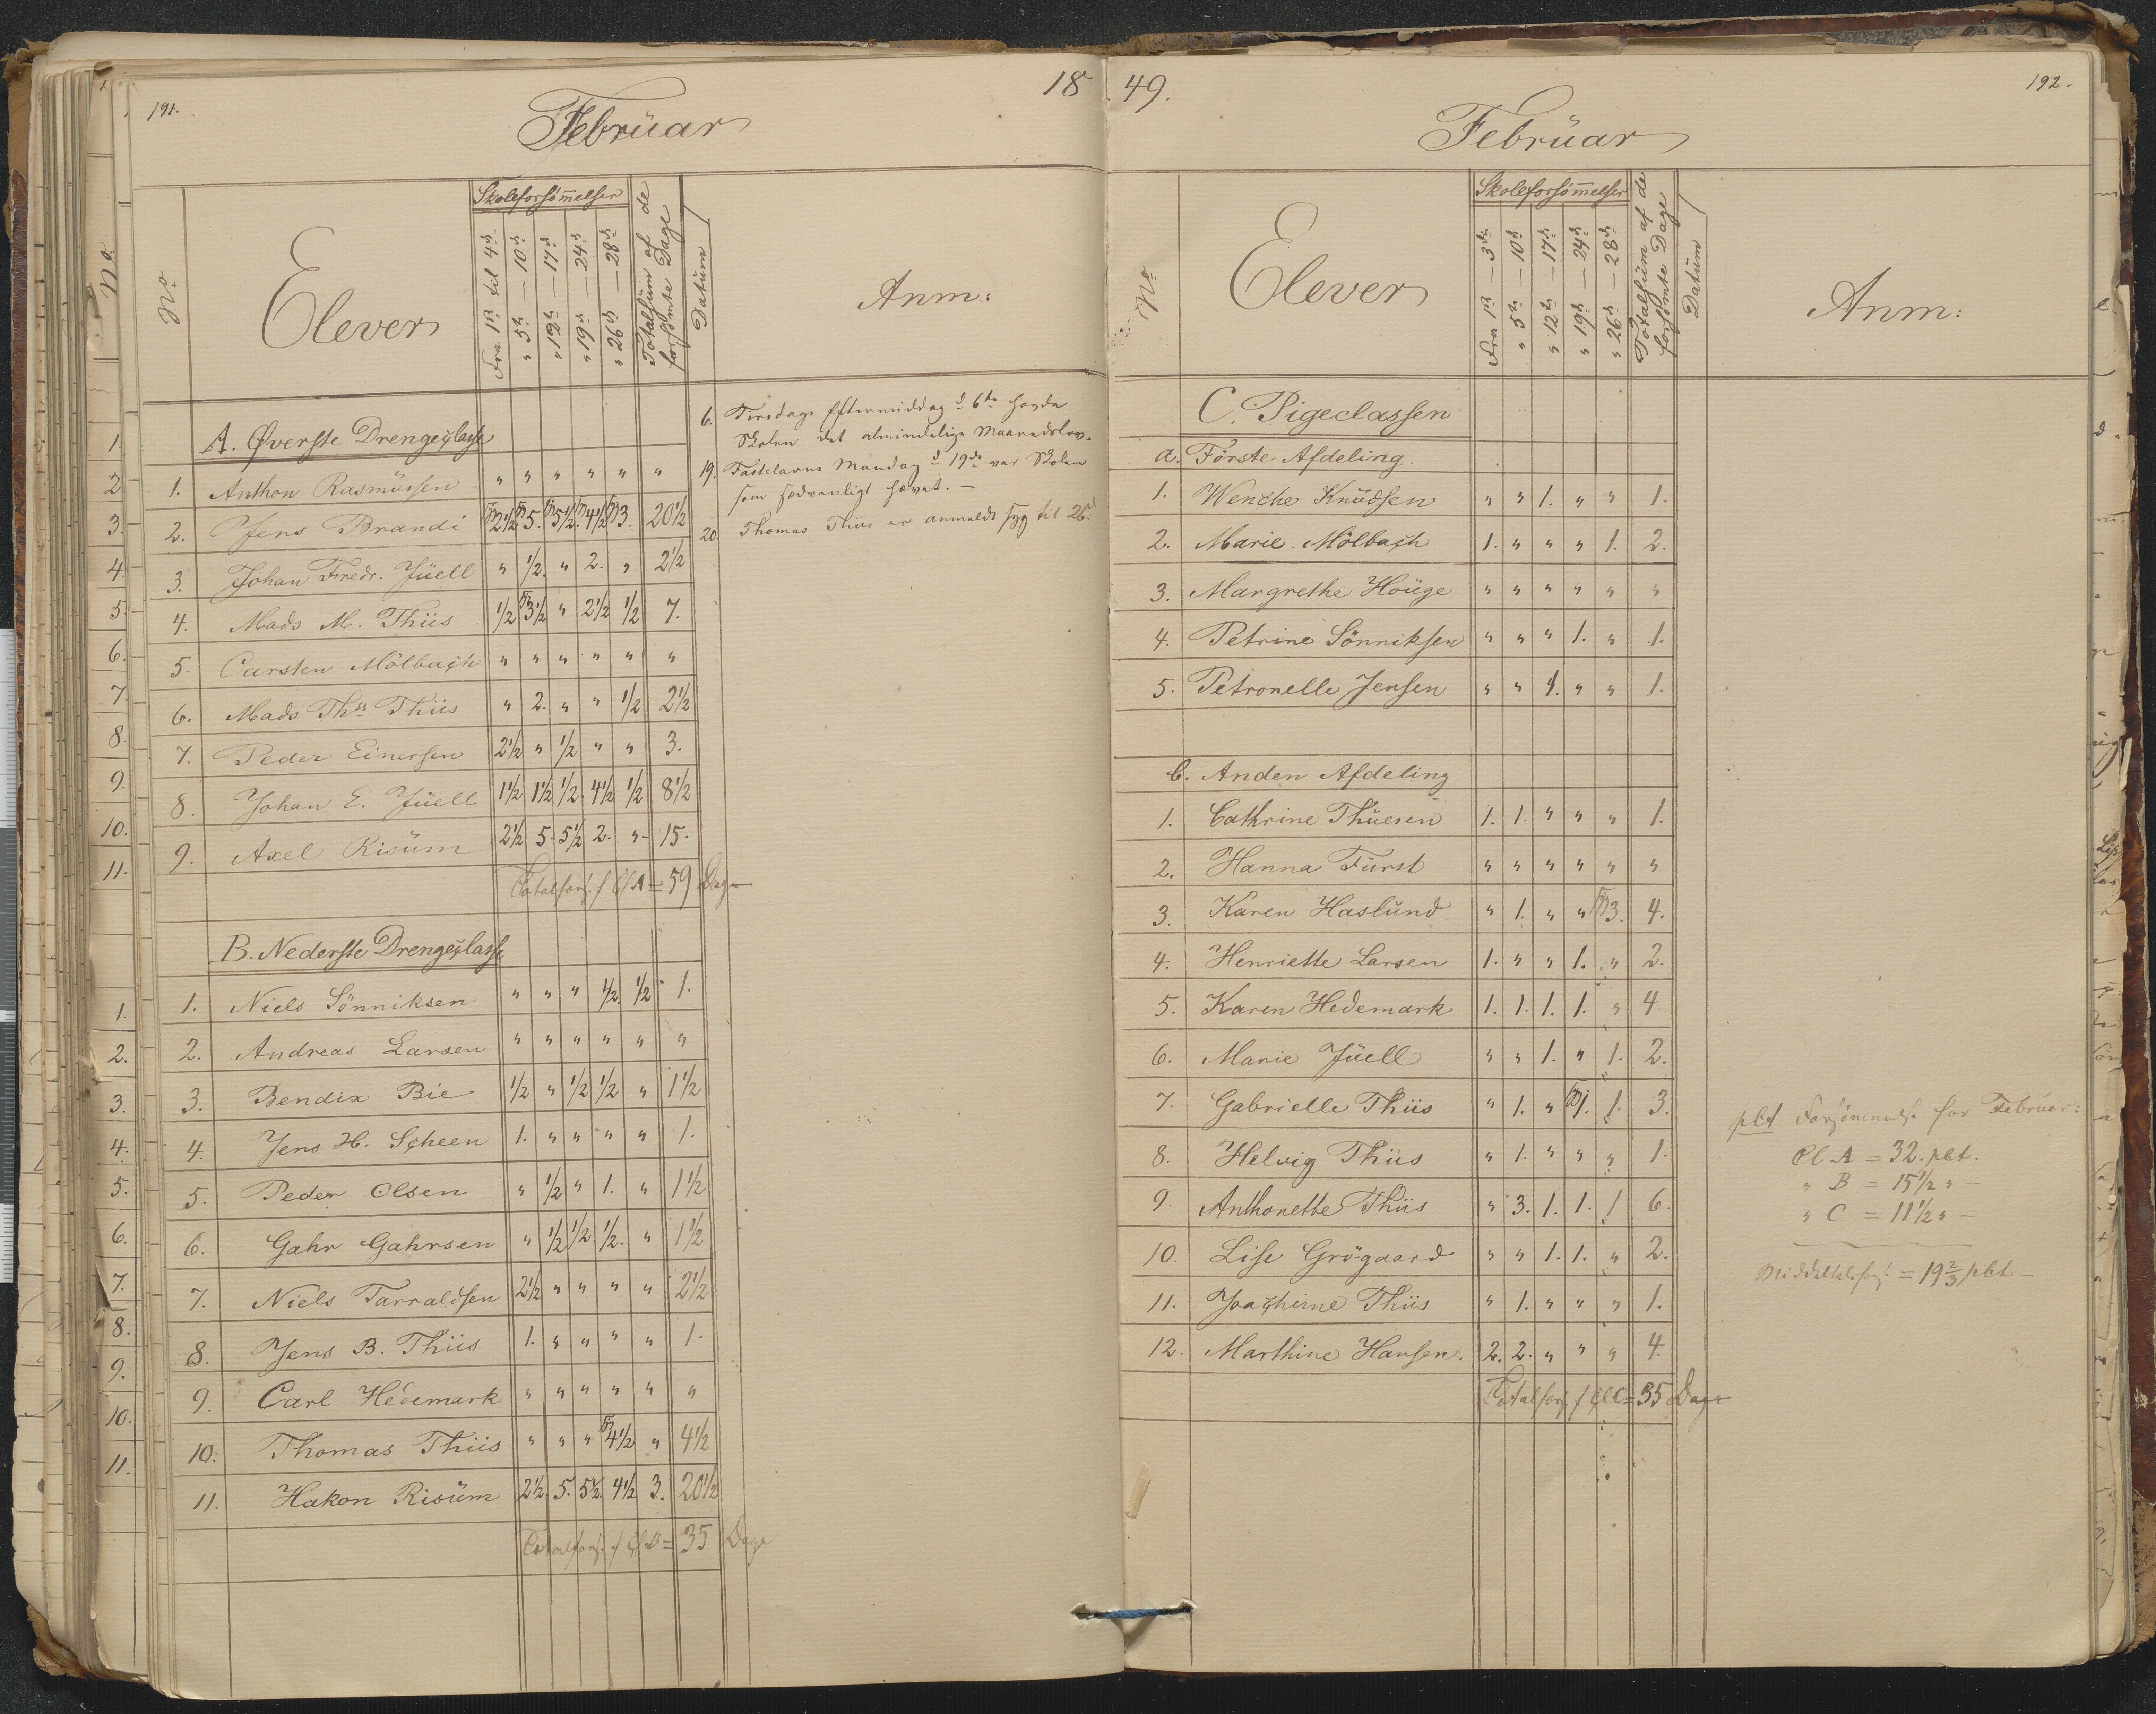 191.
18
Februar
No.
Elever
Skoleforsømmelser
Fra 1ste til 4de
" 5te — 10de
" 12te — 17de
" 19de — 24de
" 26de — 28de
Totalsum af de forsømte Dage
Datum
Anm:
A. Øverste Drengeclasse
1. Anthon Rasmussen " " " " " "
2. Jens Brandi 2½ 5. 5½ 4½ 3. 20½
3. Johan Fredr. Jüell " ½. " 2. " 2½
4. Mads M. Thiis ½ 3½ " 2½ ½ 7.
5. Carsten Mölbach " " " " " "
6. Mads Ths. Thiis " 2. " " ½ 2½
7. Peder Einersen 2½ " ½ " " 3.
8. Johan E. Jüell 1½ 1½ ½. 4½ ½ 8½
9. Axel Risüm 2½ 5. 5½ 2. " 15.
Totalfors. f Cl A = 59 Dage
B. Nederste Drengeclasse
1. Niels Sönniksen " " " ½. ½ 1.
2. Andreas Larsen " " " " " "
3. Bendix Bie ½ " ½ ½ " 1½
4. Jens H. Scheen 1. " " " " 1.
5. Peder Olsen " ½ " 1. " 1½
6. Gahr Gahrsen " ½ ½. ½. " 1½
7. Niels Tarraldsen 2½ " " " " 2½
8. Jens B. Thiis 1. " " " " 1.
9. Carl Hedemark " " " " " "
10. Thomas Thiis " " " 4½ " 4½
11. Hakon Risüm 2½. 5. 5½. 4½ 3. 20½
Totalfors. f Cl B = 35 Dage
6. Tirsdags Eftermiddag d 6te havde
Skolen det almindelige Maanedslov.
19. Fastelavns Mandag d 19de var Skolen
som sædvanligt hævet. —
20. Thomas Thiis er anmeldt syg til 26de
49.
192.
Februar
No.
Elever
Skoleforsømmelser
Fra 1ste — 3die
" 5te — 10de
" 12te — 17de
" 19de — 24de
" 26de — 28de
Totalsum af de forsømte Dage
Datum
Anm:
C. Pigeclassen
a. Förste Afdeling
1. Wenche Knüdsen " " 1. " " 1.
2. Marie Mölbach 1. " " " 1. 2.
3. Margrethe Houge " " " " " "
4. Petrine Sönniksen " " " 1. " 1.
5. Petronelle Jensen " " 1. " " 1.
b. Anden Afdeling
1. Cathrine Thuesen 1. 1. " " " 1.
2. Hanna Fürst " " " " " "
3. Karen Haslund " 1. " " 3. 4.
4. Henriette Larsen 1. " " 1. " 2.
5. Karen Hedemark 1. 1. 1. 1. " 4
6. Marie Jüell " " 1. " 1. 2.
7. Gabrielle Thiis " 1. " 1. 1. 3.
8. Helvig Thiis " 1. " " " 1.
9. Anthonette Thiis " 3. 1. 1. 1 6.
10. Lise Grögaard " " 1. 1. " 2.
11. Joachime Thiis " 1. " " " 1.
12. Marthine Hansen. 2. 2. " " " 4.
Totalfors. f Cl C = 35 Dage
pCt Forsömmelse for Februar:
Cl A = 32. pCt.
" B = 15½ " —
" C = 11½ " —
Middeltalsfors. = 19⅔ pCt —